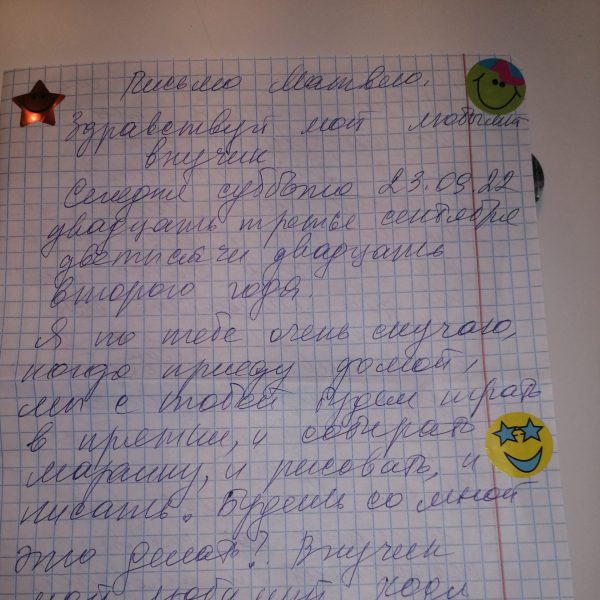 Письмо Матвею.
Здравствуй мой любимый
внучик
Сегодня суббота 23.09.22
двадцать третье сентября
две тысячи двадцать
второго года.
Я по тебе очень скучаю,
когда приеду домой,
мы с тобой будем играть
в прятки, и собирать
и рисовать, и
писать. Будешь со мной
это делать? Внучик
мой любимий